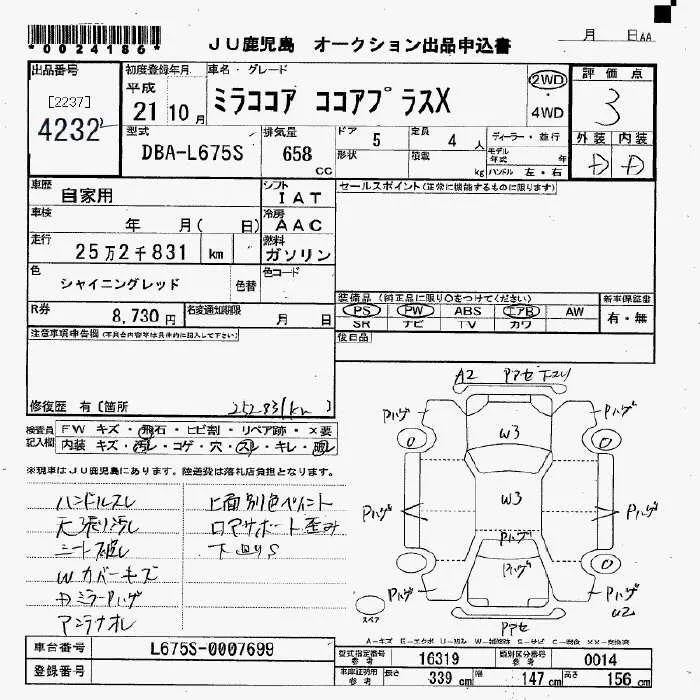 *0024186*
JU鹿児島 オークション出品申込書
月 日AA
出品番号 初度登録年月 車名・グレード 評価点
[2237]
4232
平成
21 10月 ミラココア ココアプラスX 2WD
・
4WD
3
型式 排気量 ドア 5 定員 4人 ディーラー・並行 外装 内装
DBA-L675S 658 CC 形状 積載 kg モデル年式 年
ハンドル 左・右
車歴 自家用 シフト IAT セールスポイント(正常に機能するものに限ります)
車検 年 月( 日) 冷房 AAC
走行 25万2千831 km 燃料 ガソリン
色 シャイニングレッド 色替 色コード
R券 8,730円 名変通知期限 月 日
装備品(純正品に限り○をつけてください) 新車保証書
PS PW ABS エアB AW 有・無
SR ナビ TV カワ
注意事項申告欄(不具合内容等は具体的に記入して下さい) 後日品
修復歴 有〔箇所 252831km 〕
検査員記入欄 FW キズ・飛石・ヒビ割・リペア跡・X要
内装 キズ・汚レ・コゲ・穴・スレ・キレ・
※現車はJU鹿児島にあります。陸送費は落札店負担となります。
ハンドルスレ
天張り汚レ
シート破レ
Wカバーキズ
ミラーPハゲ
アンテナオレ
上面別色ペイント
ロアサポート歪み
下廻りS
A2 Pアセ
Pハゲ Pハゲ
W3
Pハゲ W3 Pハゲ
Pハゲ
Pハゲ
Pハゲ Pハゲ
U2
Pアセ
スペア
A-キズ E-エクボ U-凹み W-補修跡 S-サビ C-腐食 XX-交換済
車台番号 L675S-0007699 型式指定番号 参考 16319 類別区分番号 参考 0014
登録番号 車庫証明用 参考 長さ 339cm 幅 147cm 高さ 156cm